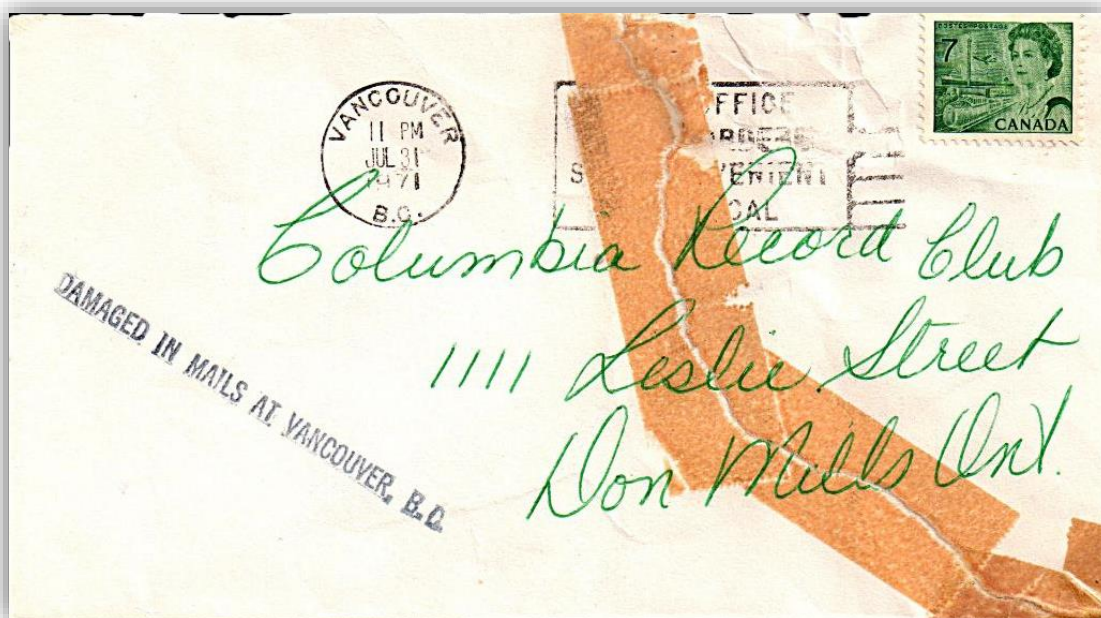 VANCOUVER
11 PM
JUL 31
1971
B.C.
OFFICE
CAL
7
POSTES POSTAGE
CANADA
Columbia Record Club
1111 Leslie Street
Don Mills Ont.
DAMAGED IN MAILS AT VANCOUVER, B.C.